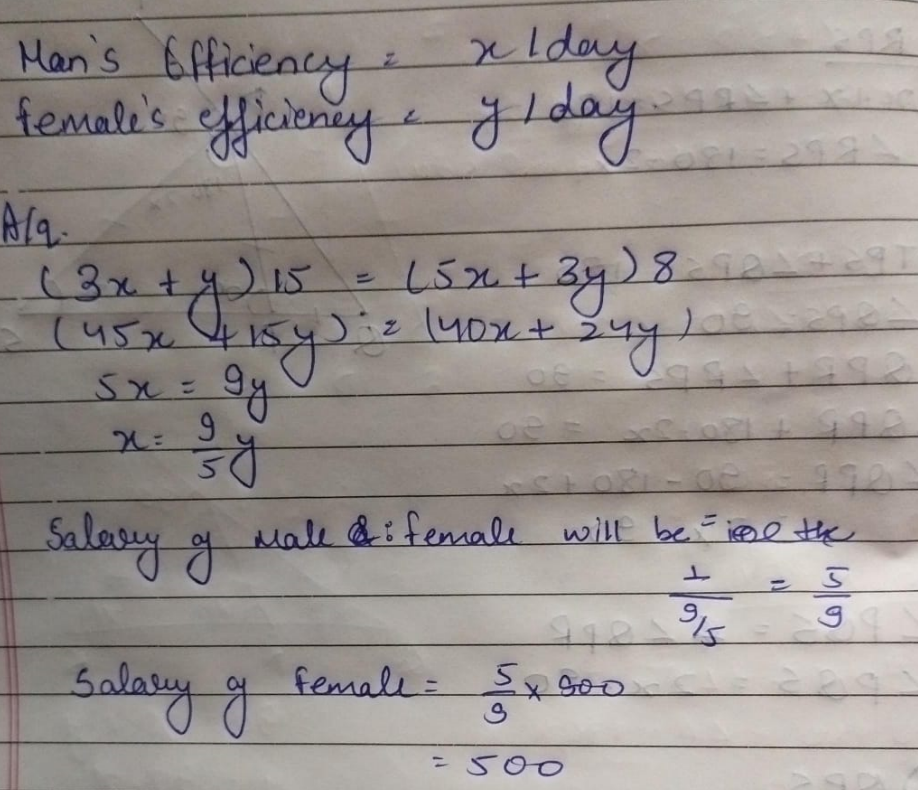 Man's Efficiency = x/day
female's efficiency = y/day.
A/q.
(3x + y) 15 = (5x + 3y) 8
(45x + 15y) = (40x + 24y)
5x = 9y
x = 9/5 y
Salary of Male : female will be = the
1/(9/5) = 5/9
Salary of female = 5/9 x 900
= 500